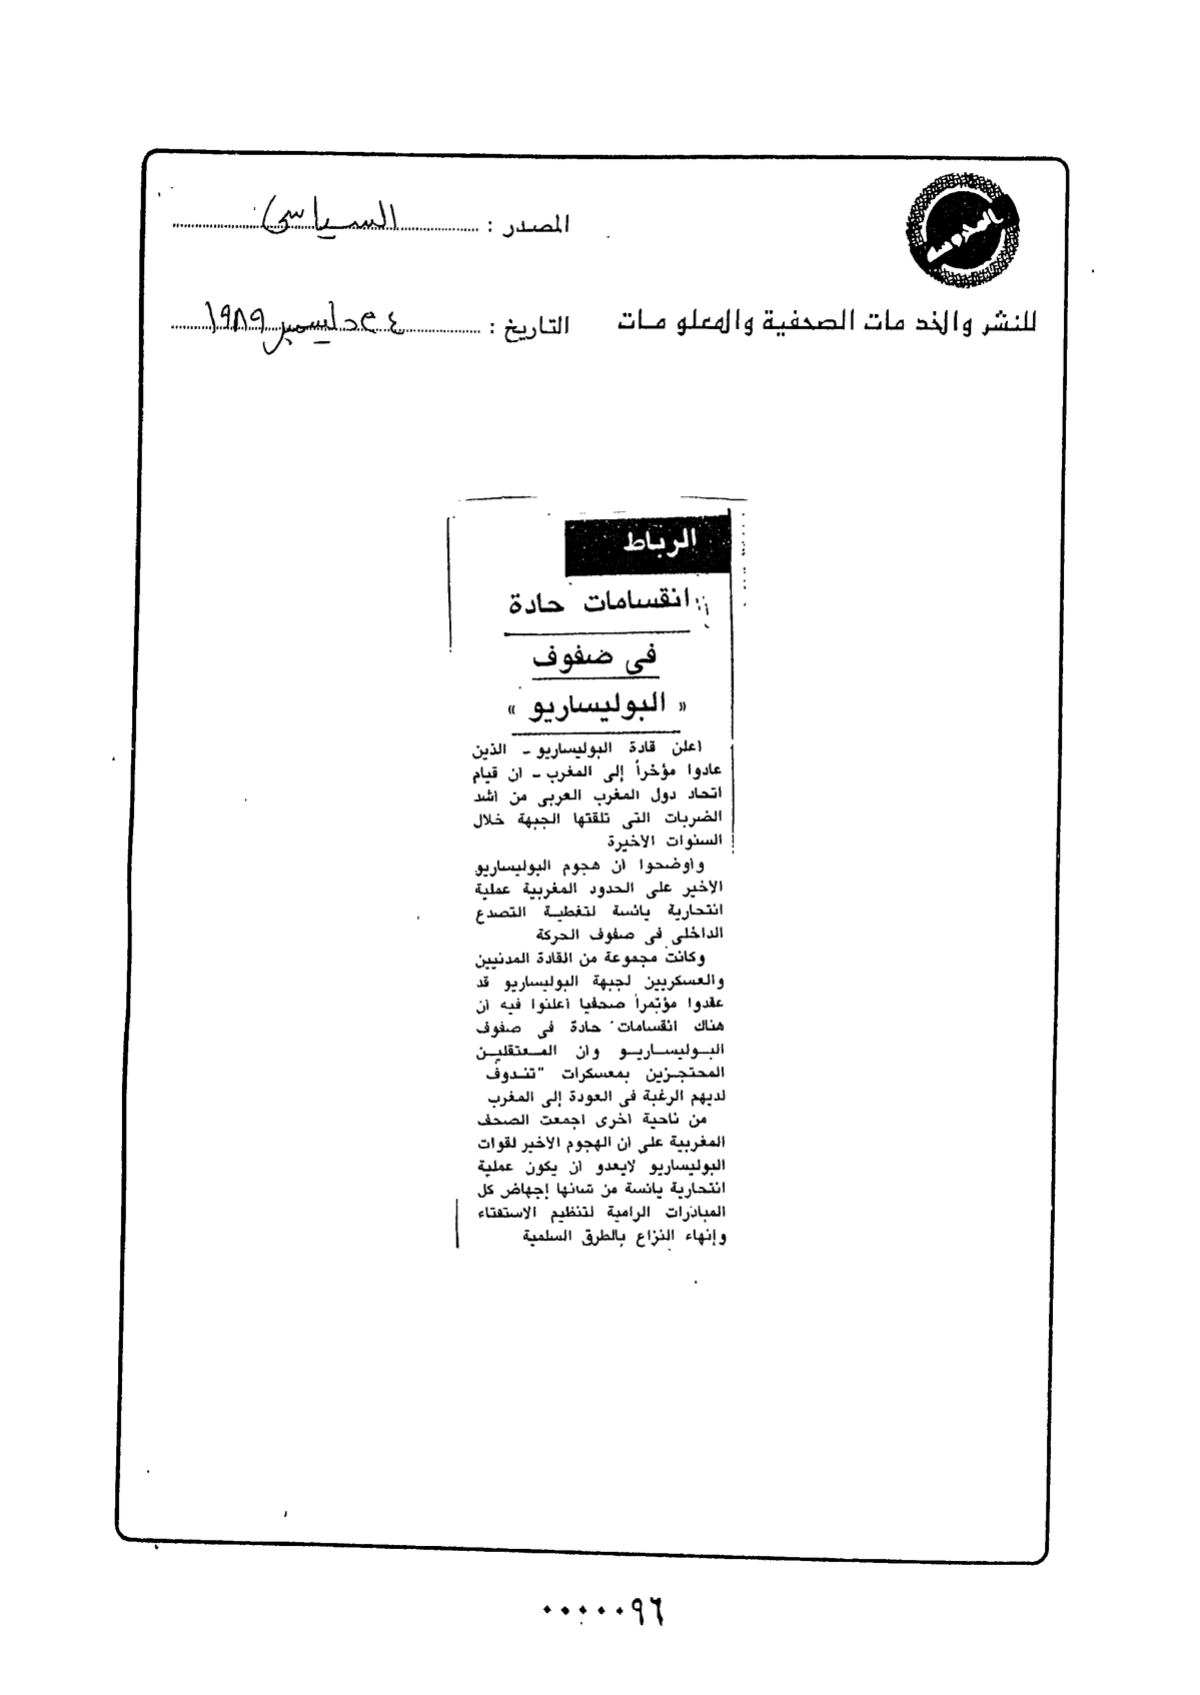 المصدر : السياسى
للنشر والخد مات الصحفية والمعلو مات
التاريخ : ٤ ديسمبر ١٩٨٩
الرباط
انقسامات حادة
فى ضفوف
« البوليساريو »
اعلن قادة البوليساريو ـ الذين
عادوا مؤخراً إلى المغرب ـ ان قيام
اتحاد دول المغرب العربى من اشد
الضربات التى تلقتها الجبهة خلال
السنوات الاخيرة
واوضحوا ان هجوم البوليساريو
الاخير على الحدود المغربية عملية
انتحارية يائسة لتغطية التصدع
الداخلى فى صفوف الحركة
وكانت مجموعة من القادة المدنيين
والعسكريين لجبهة البوليساريو قد
عقدوا مؤتمراً صحفيا اعلنوا فيه ان
هناك انقسامات حادة فى صفوف
البوليساريو وان المعتقلين
المحتجزين بمعسكرات "تندوف
لديهم الرغبة فى العودة إلى المغرب
من ناحية اخرى اجمعت الصحف
المغربية على ان الهجوم الاخير لقوات
البوليساريو لايعدو ان يكون عملية
انتحارية يائسة من شانها إجهاض كل
المبادرات الرامية لتنظيم الاستفتاء
وإنهاء النزاع بالطرق السلمية
٠٠٠٠٠٩٦